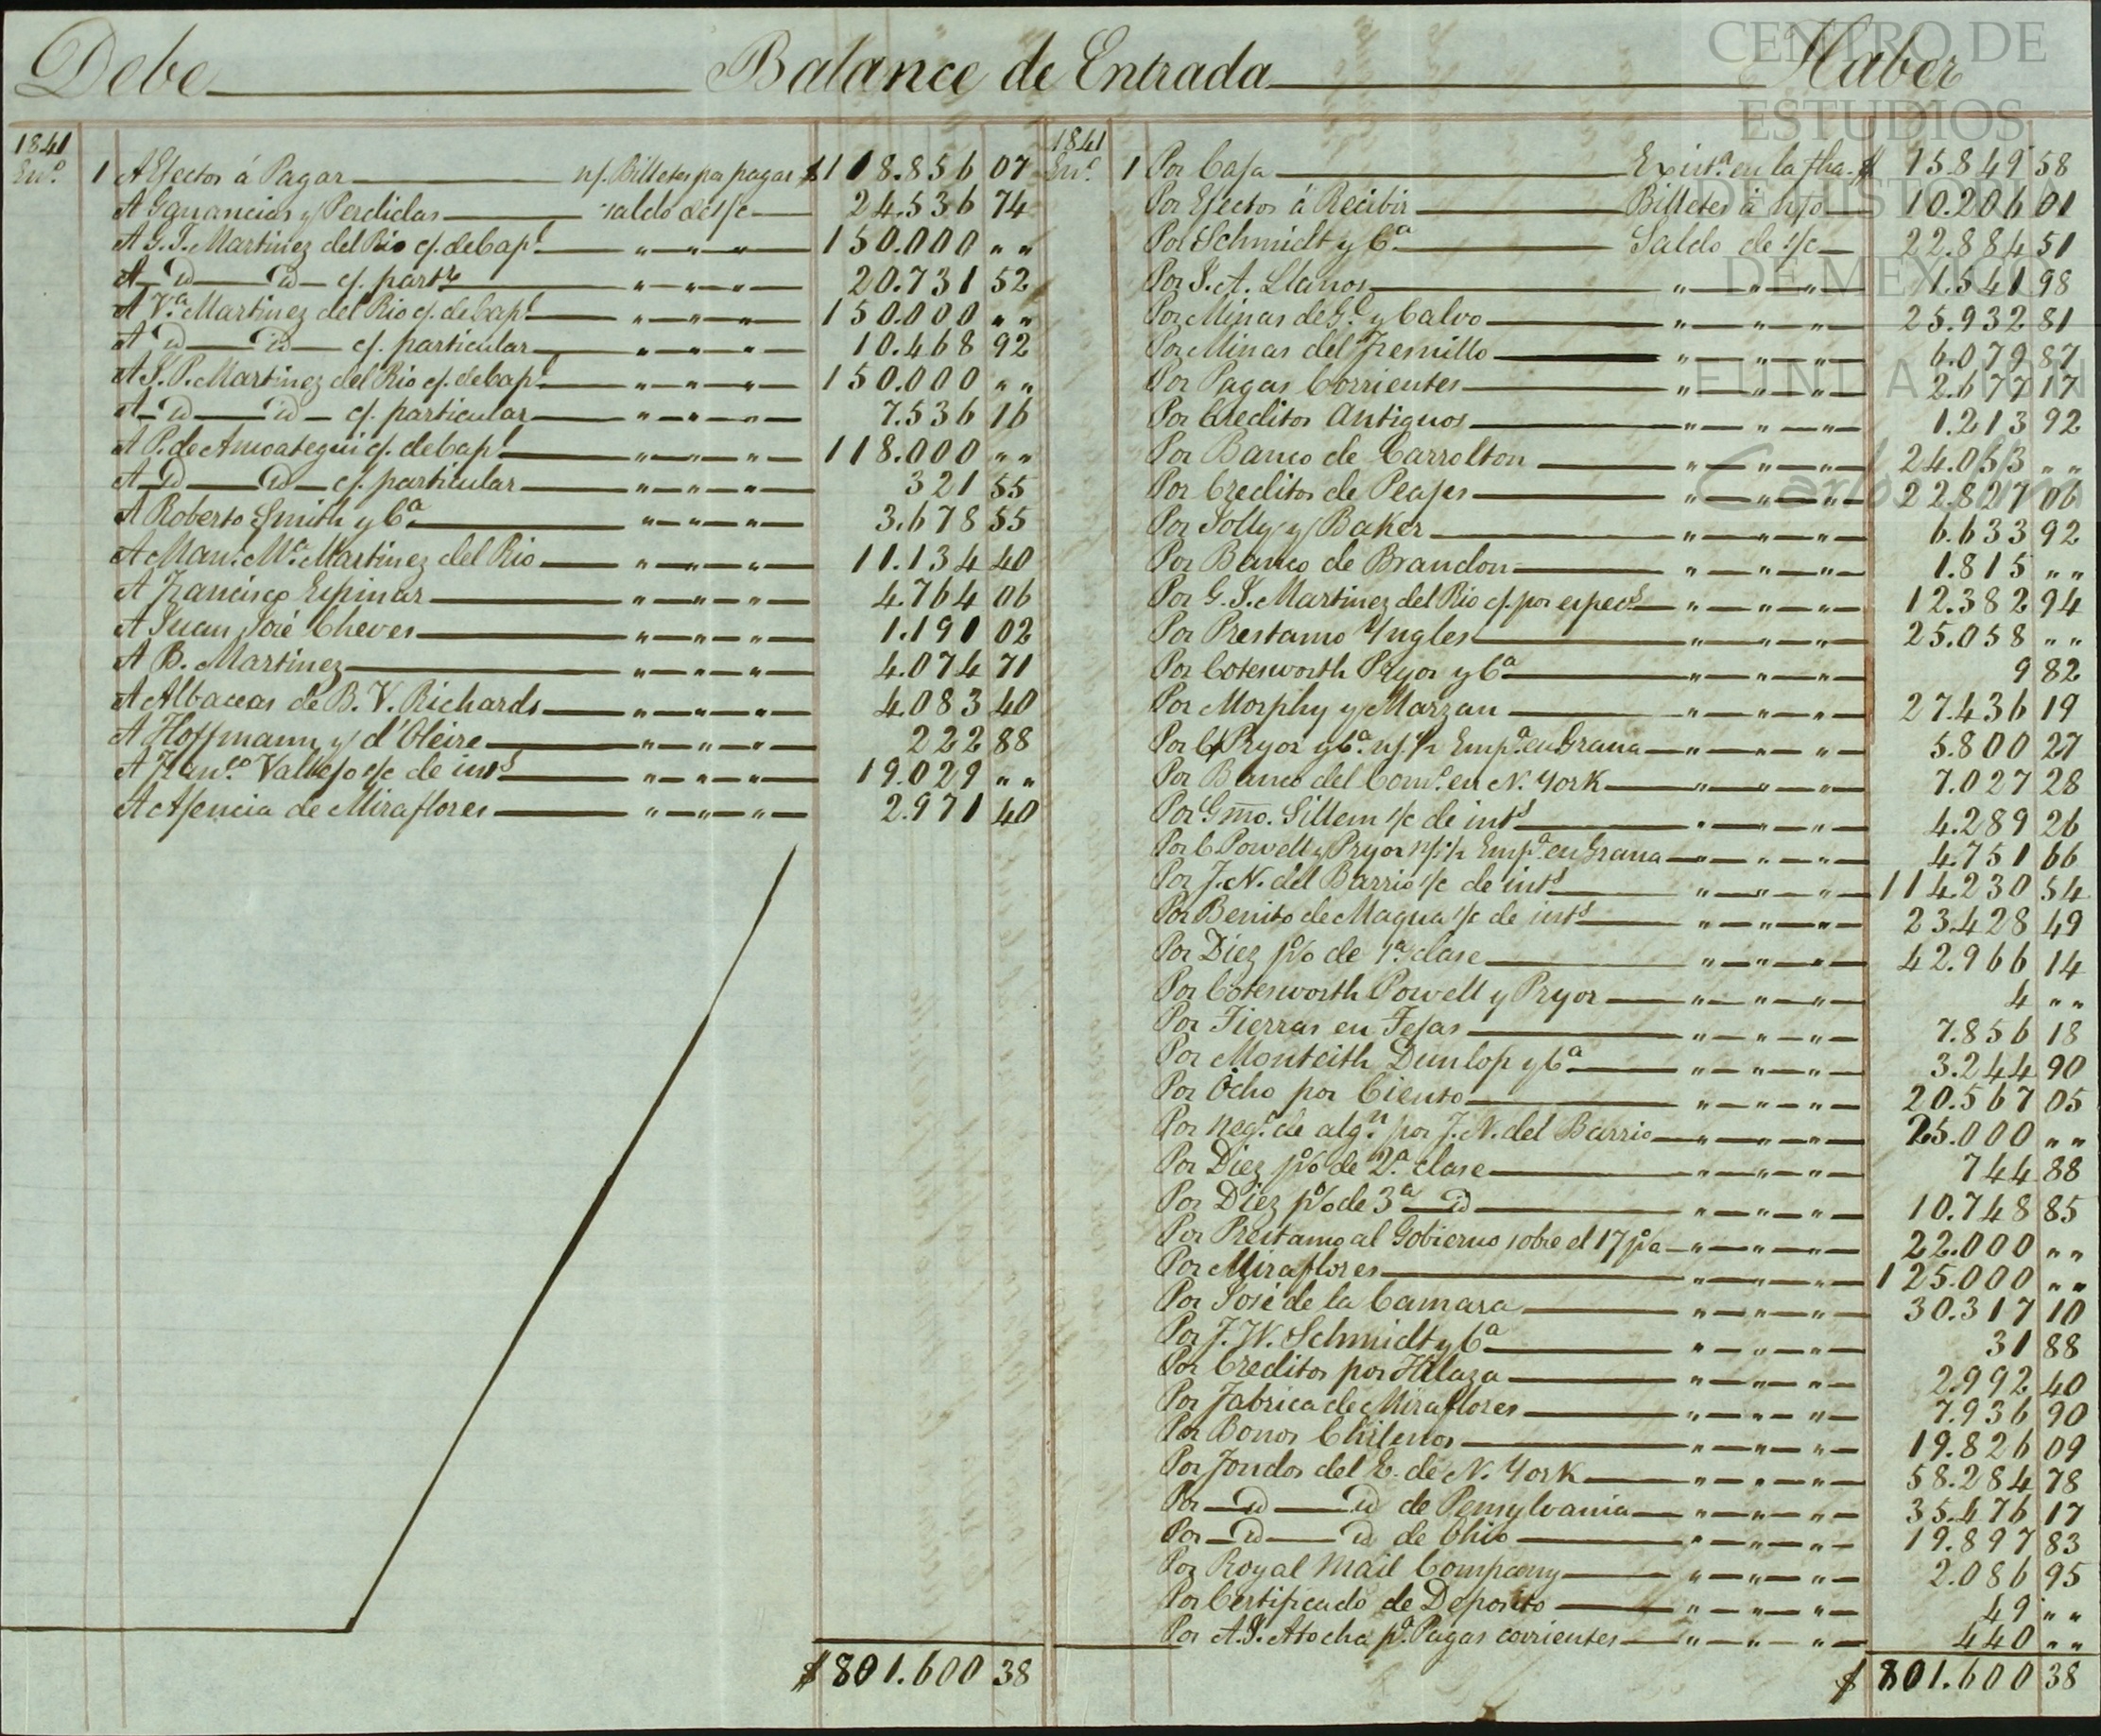 Debe Balance de Entrada Haber
1841
En.º 1 A Efectos á Pagar n/. Billetes por pagar $ 118.856 07
A Ganancias y Perdidas saldo de s/c 24.536 74
A G. J. Martinez del Rio c/. de Cap.l " " " 150.000 " "
A id id c/. part.r " " " " 20.731 52
A V.a Martinez del Rio c/. de Cap.l " " " " 150.000 " "
A id id c/. particular " " " " 10.468 92
A J. P. Martinez del Rio c/. de Cap.l " " " " 150.000 " "
A id id c/. particular " " " " 7.536 16
A P. de Amoategui c/. de Cap.l " " " " 118.000 " "
A id id c/. particular " " " " 321 55
A Roberto Smith y C.a " " " " 3.678 55
A Man.l M.a Martinez del Rio " " " " 11.134 40
A Francisco Espinar " " " " 4.764 06
A Juan José Cheves " " " " 1.191 02
A B. Martinez " " " " 4.074 71
A Albaceas de B. V. Richards " " " " 4.083 40
A Hoffmann y d'Oleire " " " " 222 88
A Fran.co Vallejo s/c de int.s " " " " 19.029 " "
A Agencia de Miraflores " " " " 2.971 40
$ 801.600 38
1841
En.º 1 Por Caja Exist.a en la fha. $ 15.849 58
Por Efectos á Recibir Billetes á n/o 10.206 01
Por Schmidt y C.a Saldo de s/c 22.884 51
Por J. A. Llanos " " " " 1.541 98
Por Minas de G.e y Calvo " " " " 25.932 81
Por Minas del Fresnillo " " " " 6.079 87
Por Pagas Corrientes " " " " 2.677 17
Por Creditos Antiguos " " " " 1.213 92
Por Banco de Carrolton " " " " 24.053 " "
Por Creditos de Peajes " " " " 22.827 06
Por Jolly y Baker " " " " 6.633 92
Por Banco de Brandon " " " " 1.815 " "
Por G. J. Martinez del Rio c/. por espec.s " " " " 12.382 94
Por Prestamo Yngles " " " " 25.058 " "
Por Cotesworth Pryor y C.a " " " " 9 82
Por Morphy y Marzan " " " " 27.436 19
Por C. Pryor y C.a n/. Emp.a en Grana " " " " 5.800 27
Por Banco del Com.o en N. York " " " " 7.027 28
Por G.mo. Sillem s/c de int.s " " " " 4.289 26
Por C. Powell y Pryor n/. Emp.a en Grana " " " " 4.751 66
Por J. N. del Barrio s/c de int.s " " " " 114.230 54
Por Benito de Magua s/c de int.s " " " " 23.428 49
Por Diez p% de 1.a clase " " " " 42.966 14
Por Cotesworth Powell y Pryor " " " " 4 " "
Por Tierras en Tejas " " " " 7.856 18
Por Monteith Dunlop y C.a " " " " 3.244 90
Por Ocho por Ciento " " " " 20.567 05
Por neg.n de alg.n por J. N. del Barrio " " " " 25.000 " "
Por Diez p% de 2.a clase " " " " 744 88
Por Diez p% de 3.a id " " " " 10.748 85
Por Prestamo al Gobierno sobre el 17 p% " " " " 22.000 " "
Por Miraflores " " " " 125.000 " "
Por José de la Camara " " " " 30.317 10
Por J. W. Schmidt y C.a " " " " 31 88
Por Creditos por Hilaza " " " " 2.992 40
Por Fabrica de Miraflores " " " " 7.936 90
Por Bonos Chilenos " " " " 19.826 09
Por Fondos del E. de N. York " " " " 58.284 78
Por id id de Pensylvania " " " " 35.476 17
Por id id de Ohio " " " " 19.897 83
Por Royal Mail Company " " " " 2.086 95
Por Certificado de Deposito " " " " 49 " "
Por A. J. Atocha p.a Pagas corrientes " " " " 440 " "
$ 801.600 38
CENTRO DE
ESTUDIOS
DE HISTORIA
DE MEXICO
FUNDACIÓN
Carlos Slim